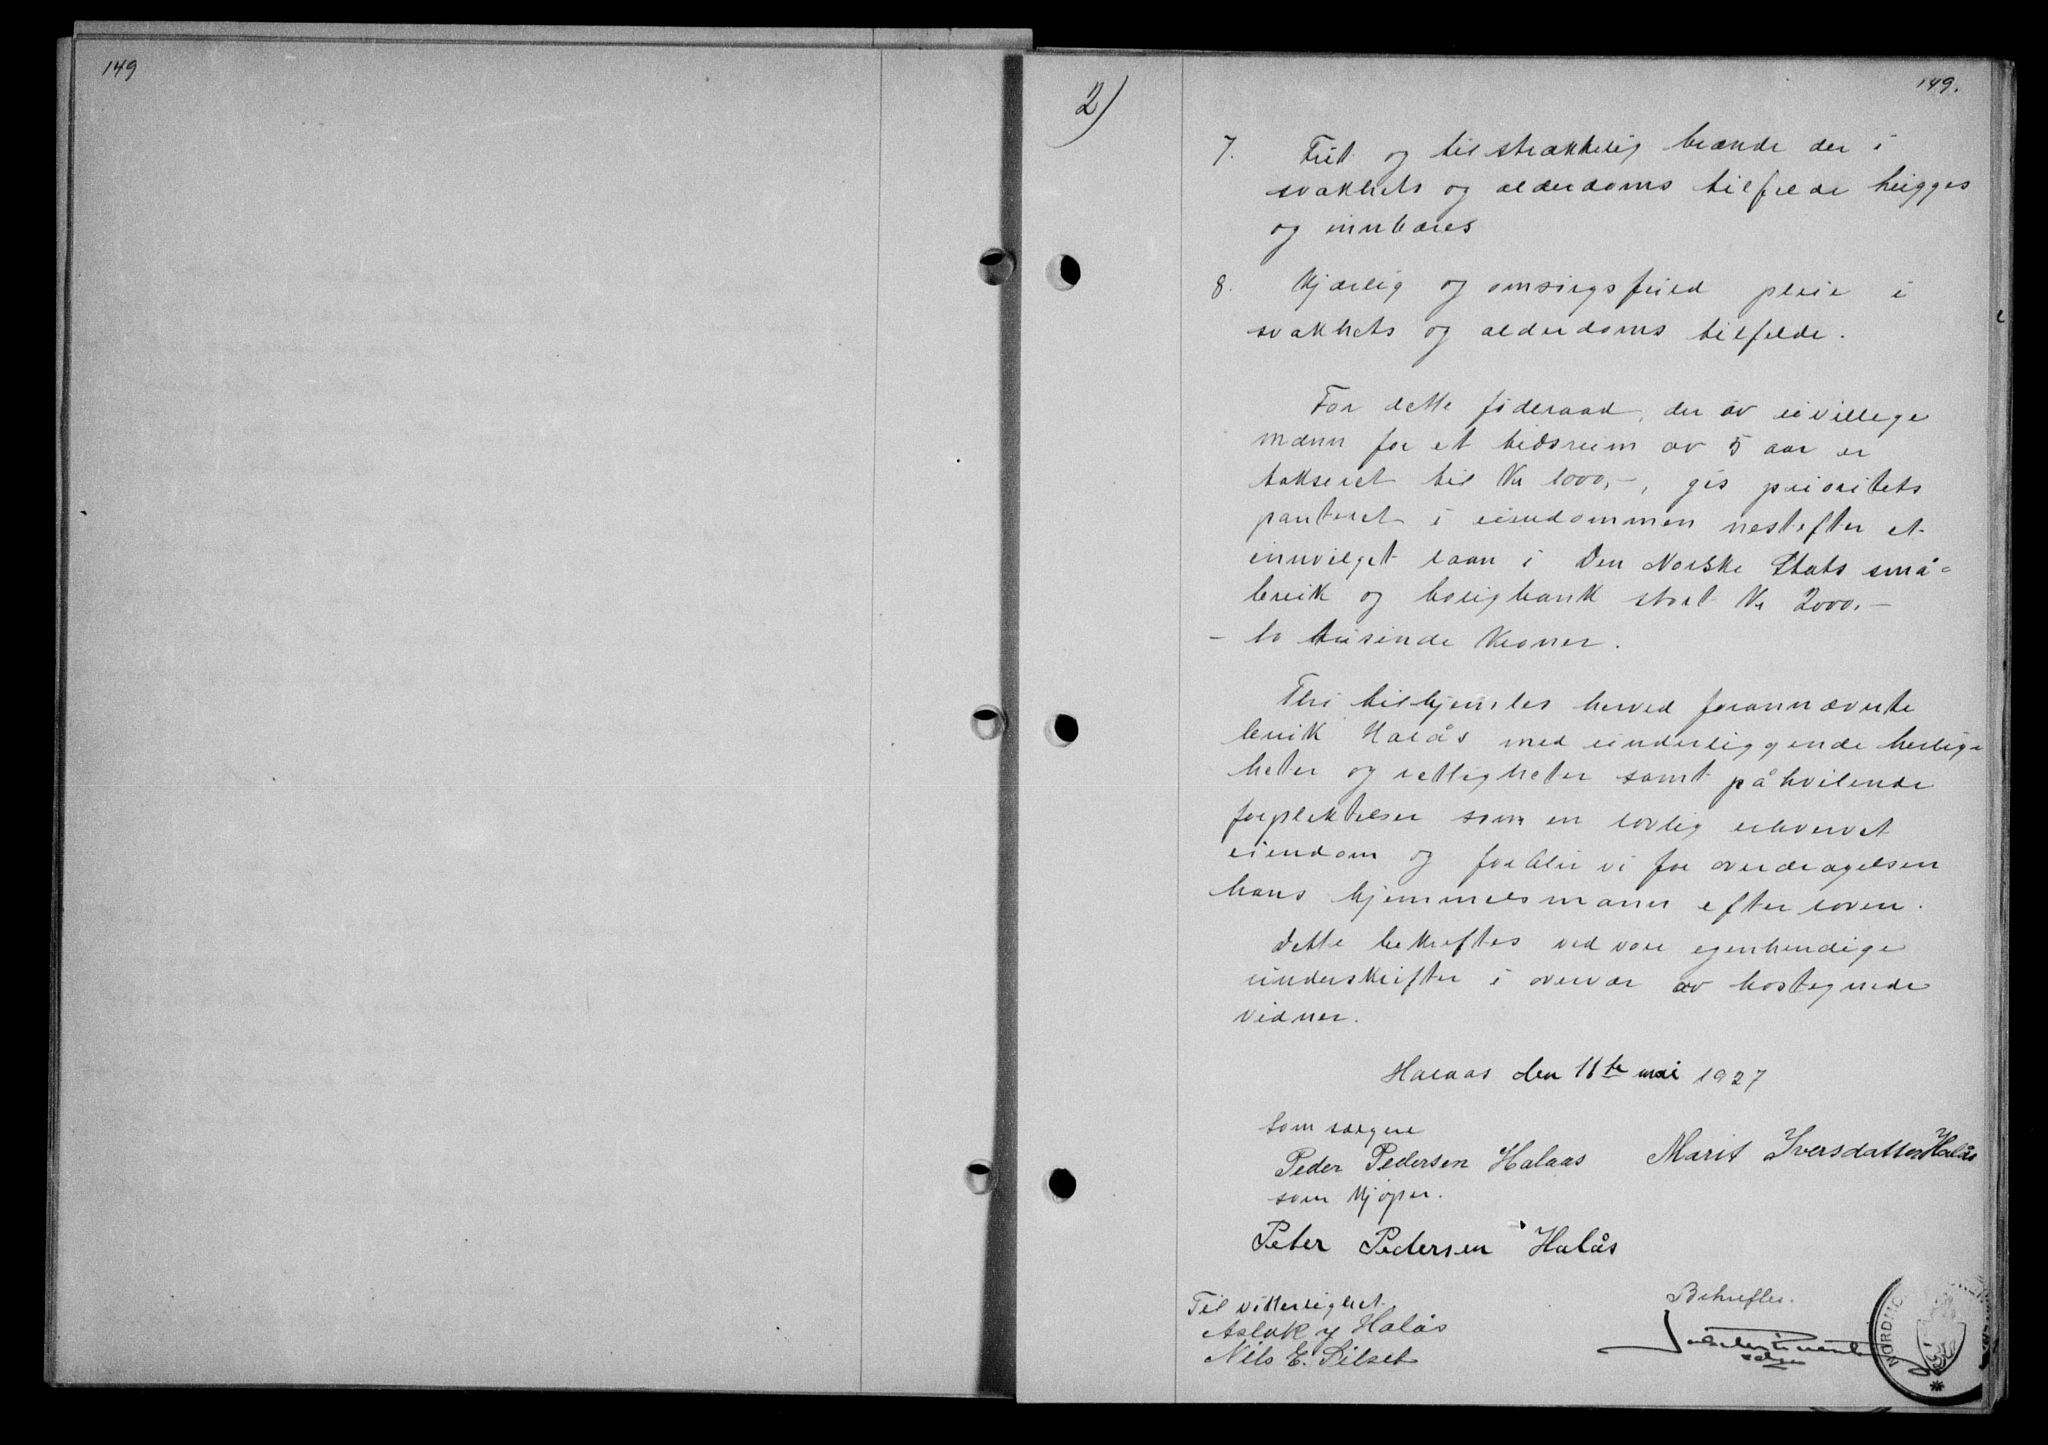 149
149.
2)
7. Frit og tilstrækkelig brænde der i
svakhets og alderdoms tilfelde hugges
og innbæres
8. Kjærlig og omsorgsfuld pleie i
svakhets og alderdoms tilfelde.
For dette føderaad, der av uvillige
mænn for et tidsrum av 5 aar er
takseret til Kr 1000,-, gis prioritets
panteret i eiendommen nestefter et
innvilget laan i Den Norske Stats små-
bruk og boligbank stort Kr 2000,-
- to tusinde Kroner.
Thi tilhjemles herved forannævnte
bruk Halås med underliggende herlig-
heter og rettigheter samt påhvilende
forpliktelser som en lovlig erhvervet
eiendom og forblir vi for overdragelsen
hans hjemmelsmann efter loven.
Dette bekreftes ved vore egenhendige
underskrifter i overvær av hostegnede
vidner.
Halaas den 11te mai 1927
Som sælgere
Peder Pedersen Halaas Marit Iversdatter Halås
som Kjøper.
Peter Pedersen Halås
Til vitterlighet.
Aslak Halås
Nils E. Silset
Bekreftes.
NORDMØR